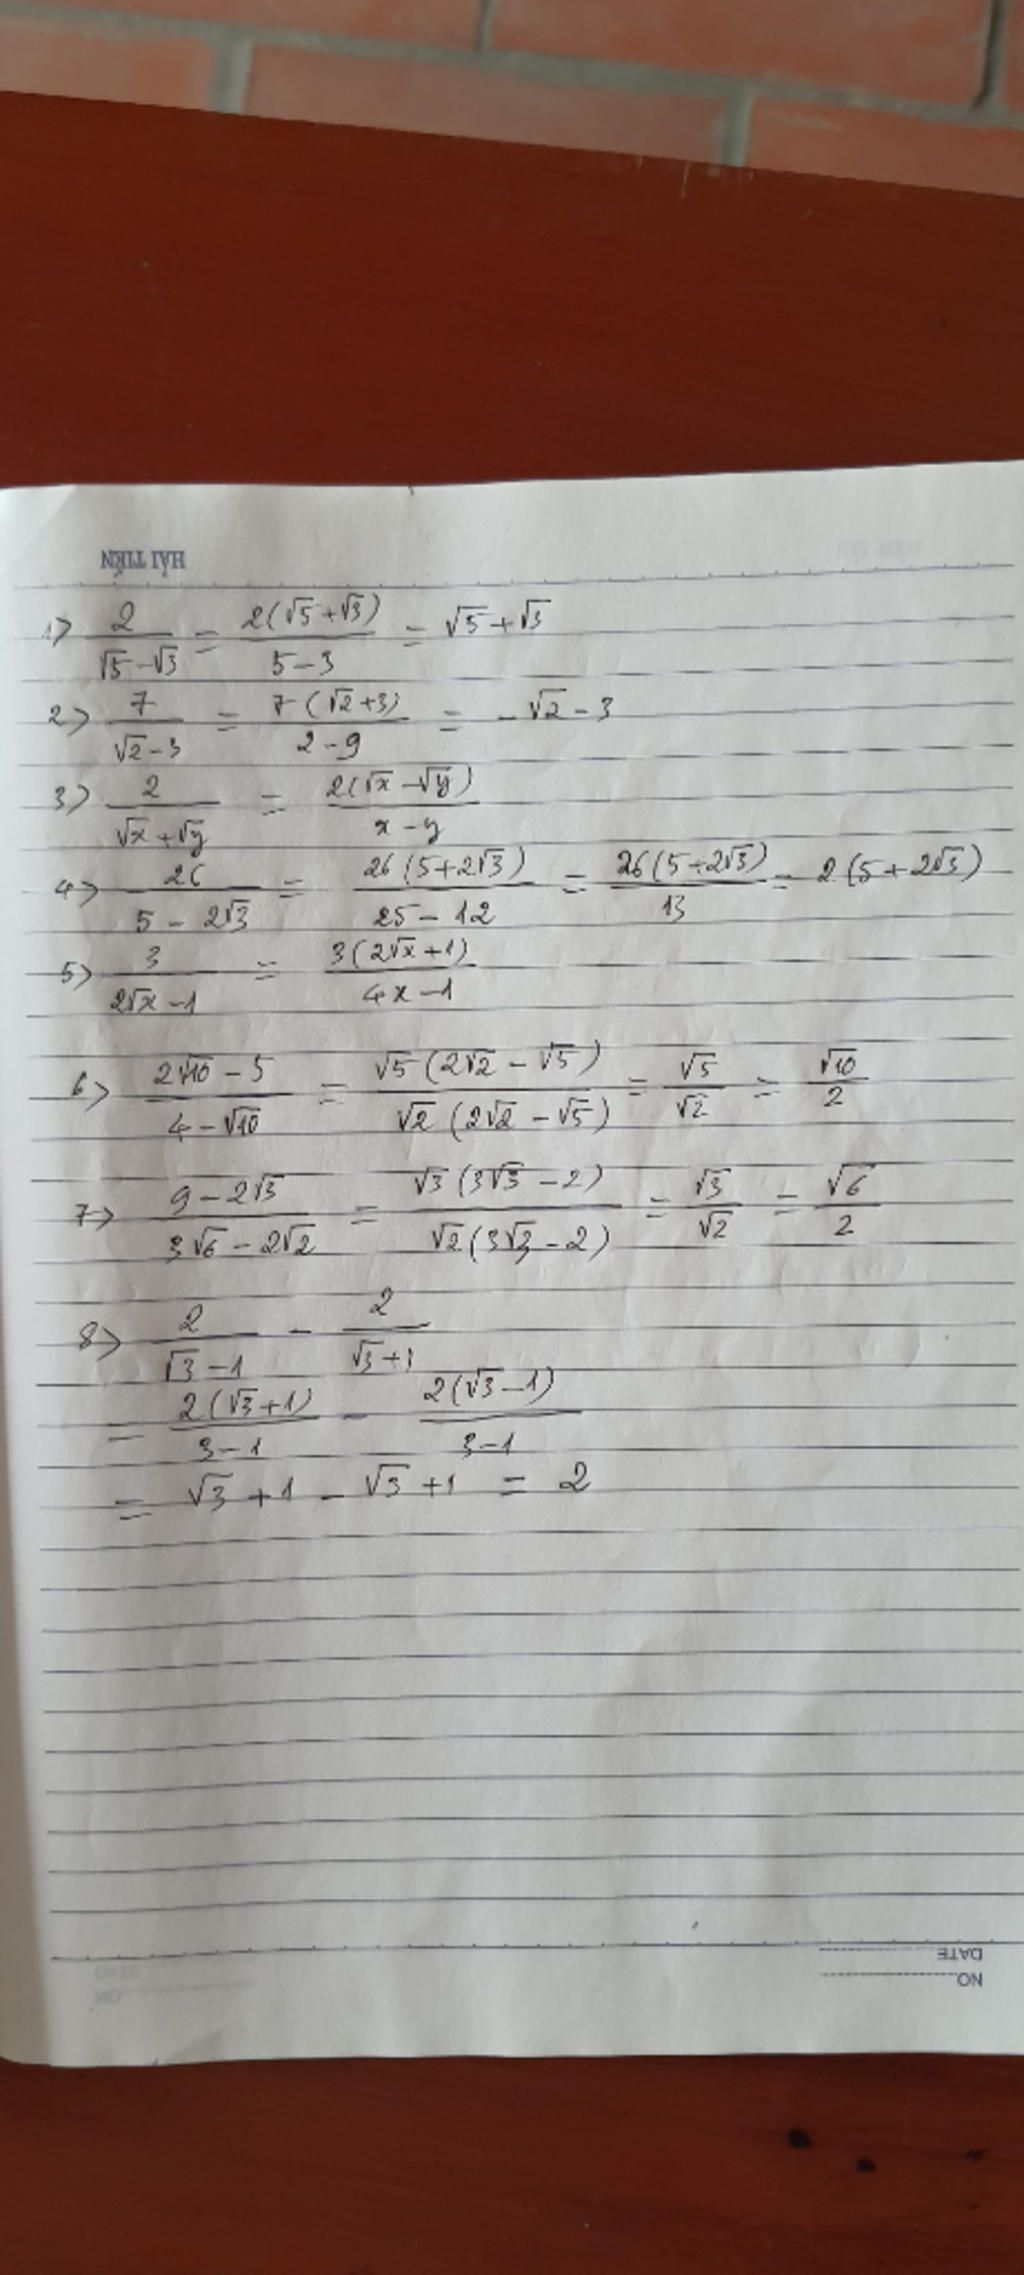 HẢI TIẾN
1> 2/(√5-√3) = 2(√5+√3)/(5-3) = √5+√3
2> 7/(√2-3) = 7(√2+3)/(2-9) = -√2-3
3> 2/(√x+√y) = 2(√x-√y)/(x-y)
4> 26/(5-2√3) = 26(5+2√3)/(25-12) = 26(5+2√3)/13 = 2(5+2√3)
5> 3/(2√x-1) = 3(2√x+1)/(4x-1)
6> (2√10-5)/(4-√10) = √5(2√2-√5)/(√2(2√2-√5)) = √5/√2 = √10/2
7> (9-2√3)/(3√6-2√2) = √3(3√3-2)/(√2(3√3-2)) = √3/√2 = √6/2
8> 2/(√3-1) - 2/(√3+1)
= 2(√3+1)/(3-1) - 2(√3-1)/(3-1)
= √3+1-√3+1 = 2
DATE
NO